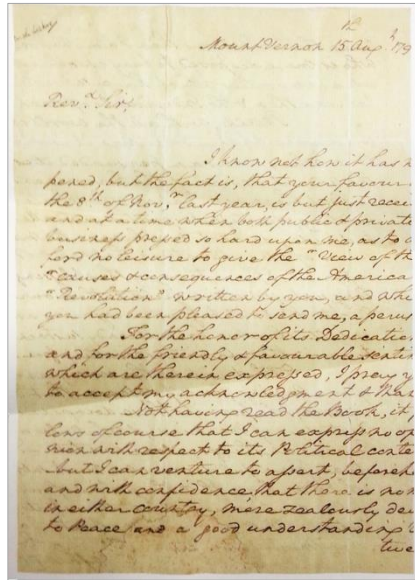 Mount Vernon 15 Augt 179
Revd Sir,
I know not how it has h
pened, but the fact is, that your favour
the 8th of Novr last year, is but just recei
and at a time when both public & private
business pressed so hard upon me, as to a
ford no leisure to give the "View of th
"causes & consequences of the America
"Revolution" written by you, and whi
you had been pleased to send me, a perus
For the honor of its Dedicatio
and for the friendly & favourable senti
which are therein expressed, I pray y
to accept my acknowledgment & than
Not having read the Book, it
lows of course that I can express no op
nion with respect to its Political conte
but I can venture to assert, beforeh
and with confidence, that there is no
in either country, more zealously de
to Peace and a good understanding b
twee